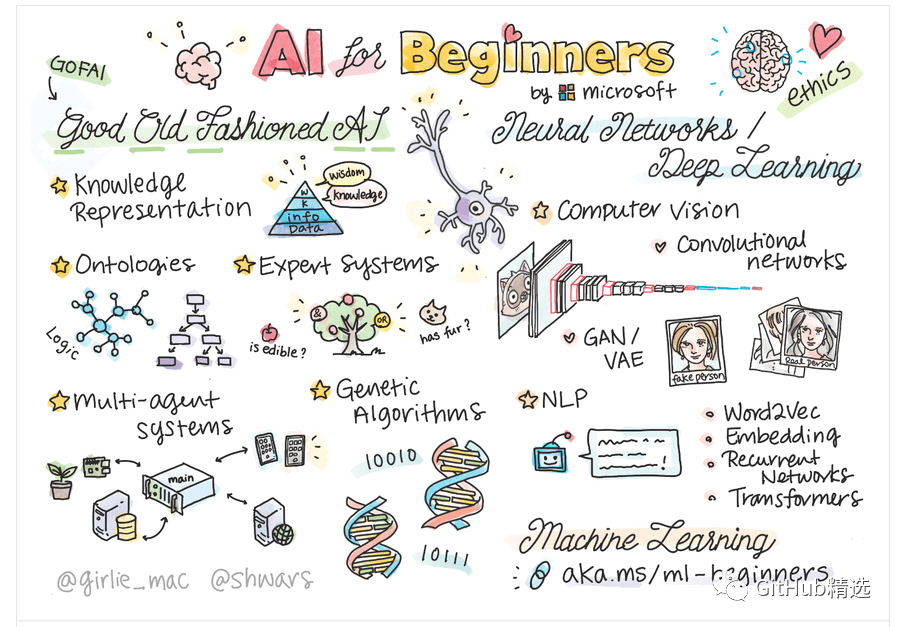 AI for Beginners
by microsoft
GOFAI
ethics
Good Old Fashioned AI
Knowledge
Representation
wisdom
knowledge
W
K
info
Data
Ontologies
Logic
Expert Systems
&
OR
is edible?
has fur?
Multi-agent
systems
main
Genetic
Algorithms
10010
10111
Neural Networks /
Deep Learning
Computer Vision
Convolutional
networks
GAN /
VAE
fake person
real person
NLP
!
Word2Vec
Embedding
Recurrent
Networks
Transformers
Machine Learning
aka.ms/ml-beginners
@girlie_mac @shwars
GitHub精选